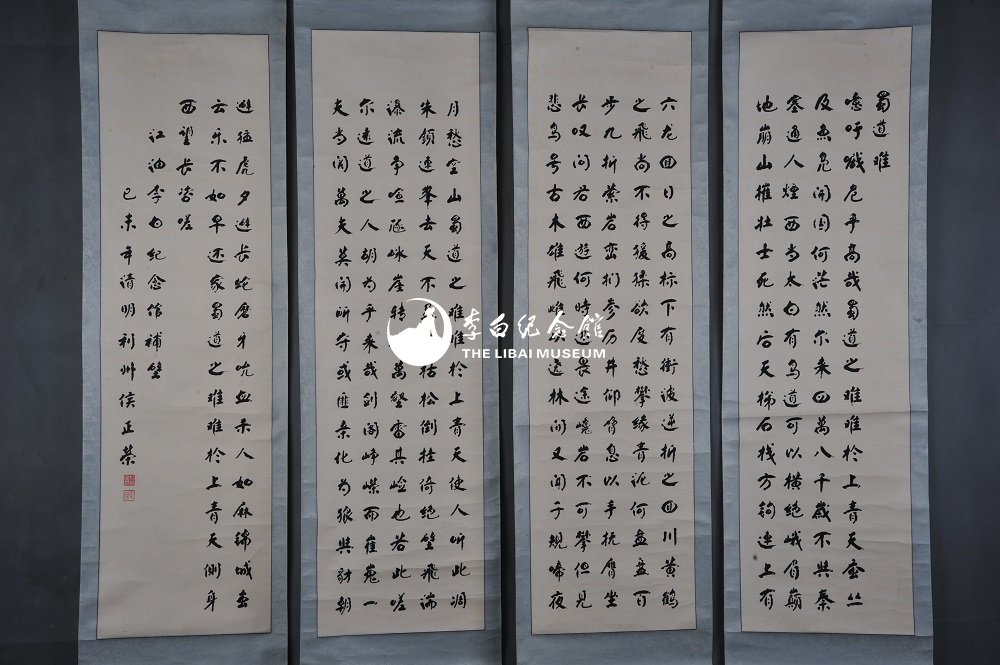 蜀道难
噫吁嚱危乎高哉蜀道之难难於上青天蚕丛
及鱼凫开国何茫然尔来四萬八千歲不與秦
塞通人煙西当太白有鸟道可以横绝峨眉巅
地崩山摧壮士死然后天梯石栈方钩连上有
六龙回日之高标下有衝波逆折之回川黄鹤
之飛尚不得猨猱欲度愁攀缘青泥何盘盘百
步九折萦岩峦扪参历井仰脅息以手抚膺坐
长叹问君西遊何时还畏途巉岩不可攀但見
悲鸟号古木雄飛雌从遶林间又闻子規啼夜
月愁空山蜀道之难难於上青天使人听此凋
朱颜连峯去天不盈尺枯松倒挂倚绝壁飛湍
瀑流争喧豗砯崖转石萬壑雷其崄也若此嗟
尔遠道之人胡为乎来哉剑阁峥嵘而崔嵬一
夫当关萬夫莫开所守或匪亲化为狼與豺朝
避猛虎夕避长蛇磨牙吮血杀人如麻锦城虽
云乐不如早还家蜀道之难难於上青天侧身
西望长咨嗟
江油李白纪念馆補壁
己未年清明利州侯正荣
李白纪念館
THE LIBAI MUSEUM